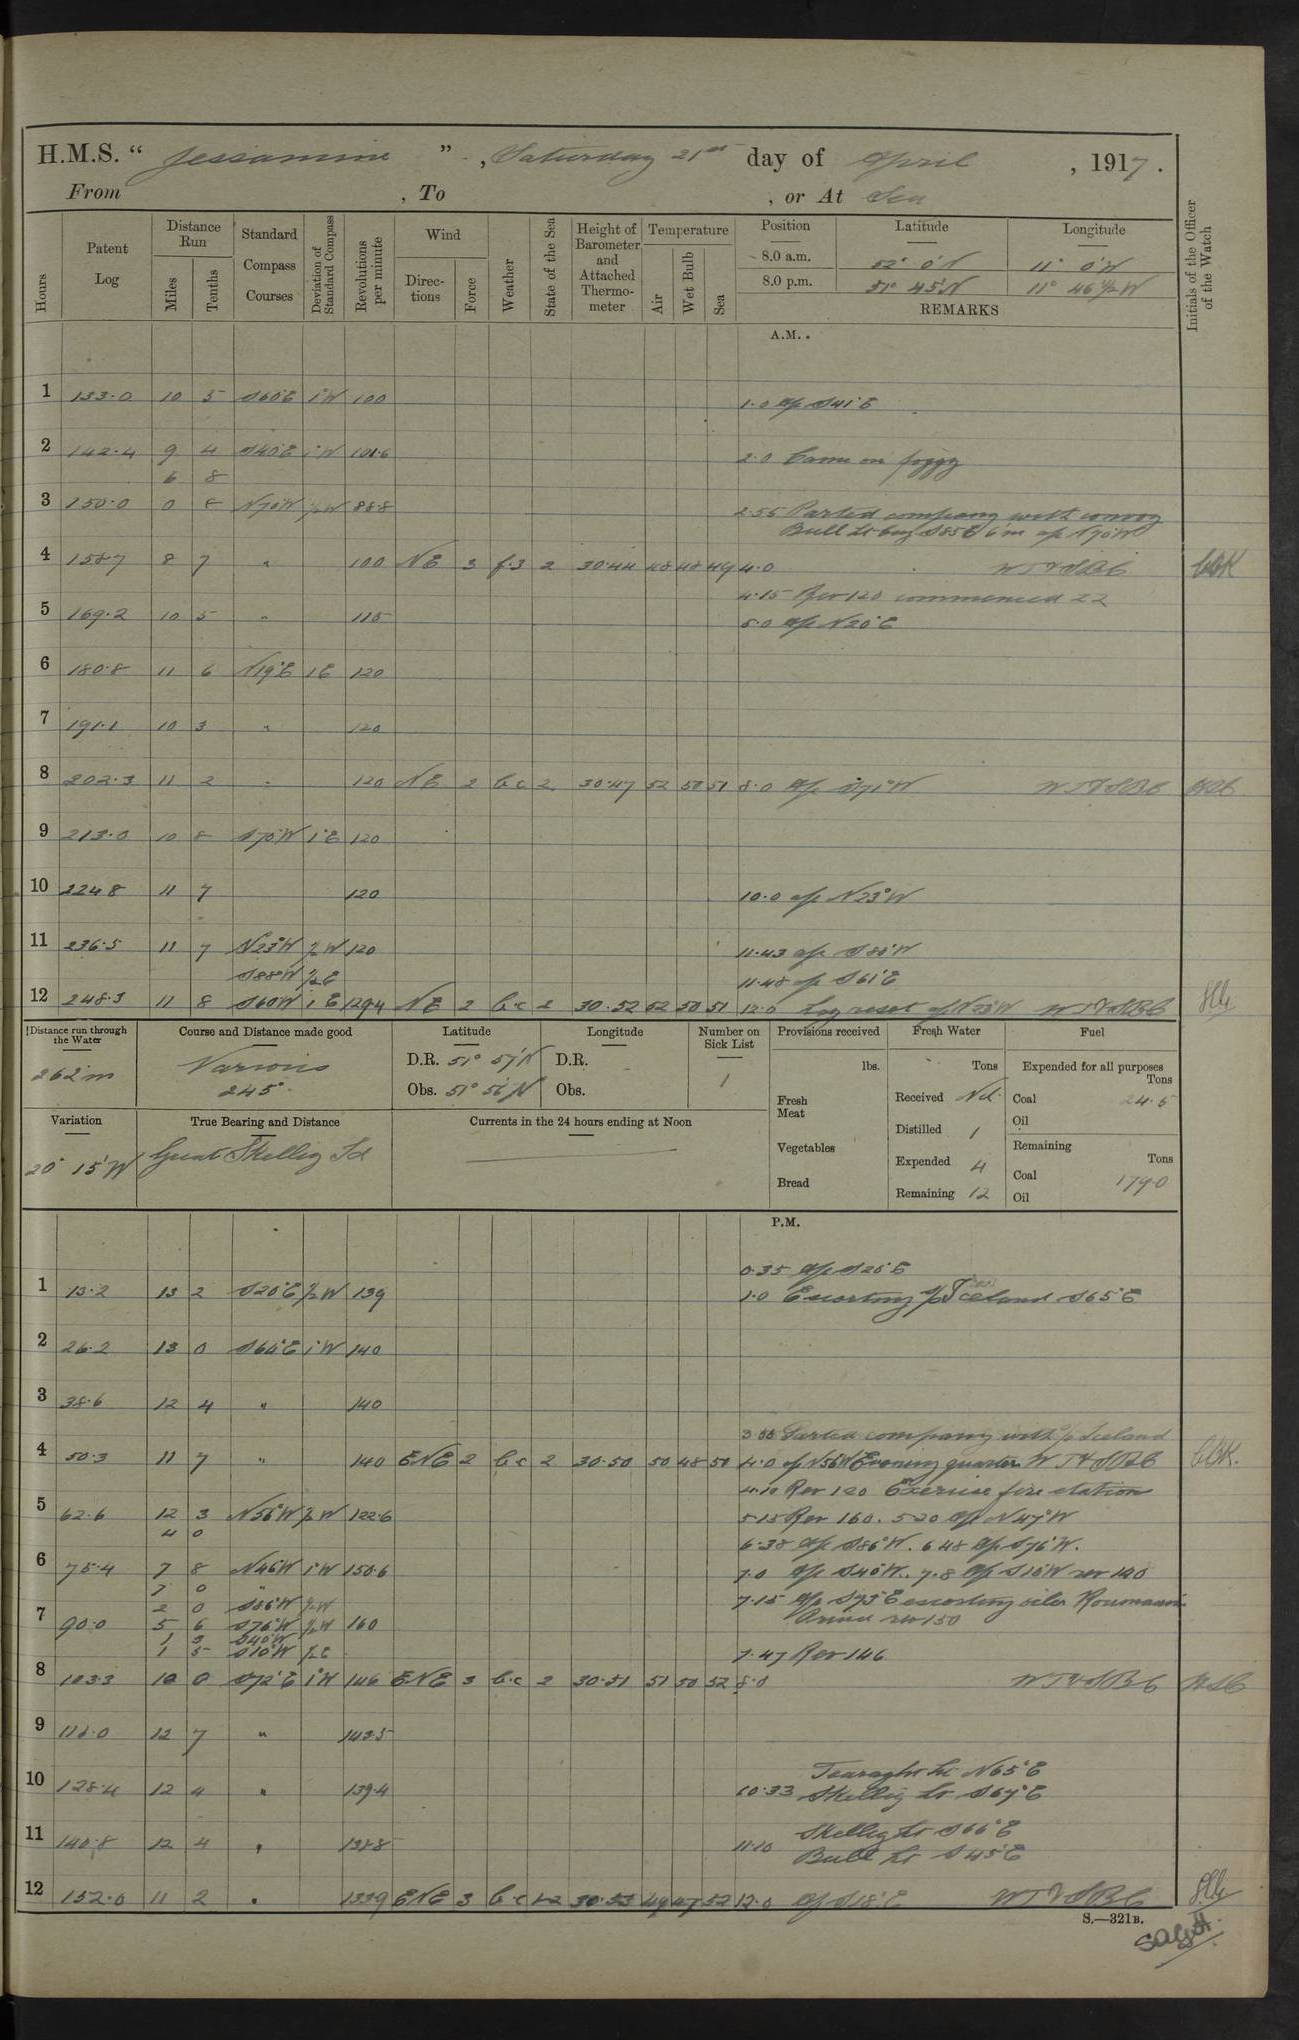 H.M.S. “ Jessamine ” , Saturday 21st day of April , 1917.
From , To , or At Sea
Hours
Patent Log
Distance Run
Miles
Tenths
Standard Compass Courses
Deviation of Standard Compass
Revolutions per minute
Wind
Directions
Force
Weather
State of the Sea
Height of Barometer and Attached Thermometer
Temperature
Air
Wet Bulb
Sea
Position Latitude Longitude
8.0 a.m. 52° 0'N 11° 0'W
8.0 p.m. 51° 45'N 11° 46½'W
REMARKS
Initials of the Officer of the Watch
A.M.
1 133.0 10 5 S60°E 1°W 100 1.0 a/c S41°E
2 142.4 9 4 S40°E 1°W 101.6 2.0 Came on foggy
6 8
3 150.0 0 8 N70°W ½W 88.8 2.55 Parted company with convoy
Bull Lt brg S85E 6m a/c N70°W
4 158.7 8 7 " 100 NE 3 f.3 2 30.44 48 48 49 4.0
4.15 Rev 120 commenced ZZ
5 169.2 10 5 " 115 5.0 a/c N20°E
6 180.8 11 6 N19°E 1E 120
7 191.1 10 3 " 120
8 202.3 11 2 " 120 NE 2 b.c 2 30.47 52 50 51 8.0 a/c S71°W
9 213.0 10 8 S70°W 1°E 120
10 224.8 11 7 120 10.0 a/c N23°W
11 236.5 11 7 N23°W ½W 120 11.43 a/c S88°W
S88W ½E 11.48 a/c S61°E
12 248.3 11 8 S60W 1E 129.4 NE 2 b.c 2 30.52 52 50 51 12.0 Log reset a/c N23°W
Distance run through the Water
262m
Course and Distance made good
Various
245°
Latitude
D.R. 51° 57'N
Obs. 51° 56'N
Longitude
D.R.
Obs.
Number on Sick List
1
Provisions received
lbs.
Fresh Meat
Vegetables
Bread
Fresh Water
Tons
Received Nil
Distilled 1
Expended 4
Remaining 12
Fuel
Expended for all purposes
Tons
Coal 24.5
Oil
Remaining
Tons
Coal 179.0
Oil
Variation
20° 15'W
True Bearing and Distance
Great Skellig Id
Currents in the 24 hours ending at Noon
P.M.
0.35 a/c S20°E
1 13.2 13 2 S20°E ½W 139 1.0 Escorting Iceland S65°E
2 26.2 13 0 S64°E 1°W 140
3 38.6 12 4 " 140
Parted company with Iceland
4 50.3 11 7 " 140 ENE 2 b.c 2 30.50 50 48 50 4.0 a/c N56W Evening quarters
4.10 Rev 120 Exercise fire station
5 62.6 12 3 N56°W ½W 122.6 5.15 Rev 160. 5.20 a/c N47°W
4 0
6.38 a/c S86°W. 6.48 a/c S76°W.
6 75.4 7 8 N46W 1°W 150.6 7.0 a/c S40°W. 7.8 a/c S10°W rev 120
7 0 "
2 0 S86°W ½W 7.15 a/c S73°E escorting oiler Roumanian
7 90.0 5 6 S76°W ½W 160 Prince rev 150
1 3 S40°W
1 5 S10°W ½E 7.47 Rev 146
8 103.3 10 0 S72°E 1°W 146 ENE 3 b.c 2 30.51 51 50 52 8.0
9 116.0 12 7 " 142.5
Tearaght Lt N65°E
10 128.4 12 4 " 139.4 10.33 Skellig Lt S67°E
Skellig Lt S66°E
11 140.8 12 4 " 138.8 11.10
Bull Lt S45°E
12 152.0 11 2 " 133.9 ENE 3 b.c 1-2 30.53 49 47 52 12.0 a/c S18°E
S.—321B.